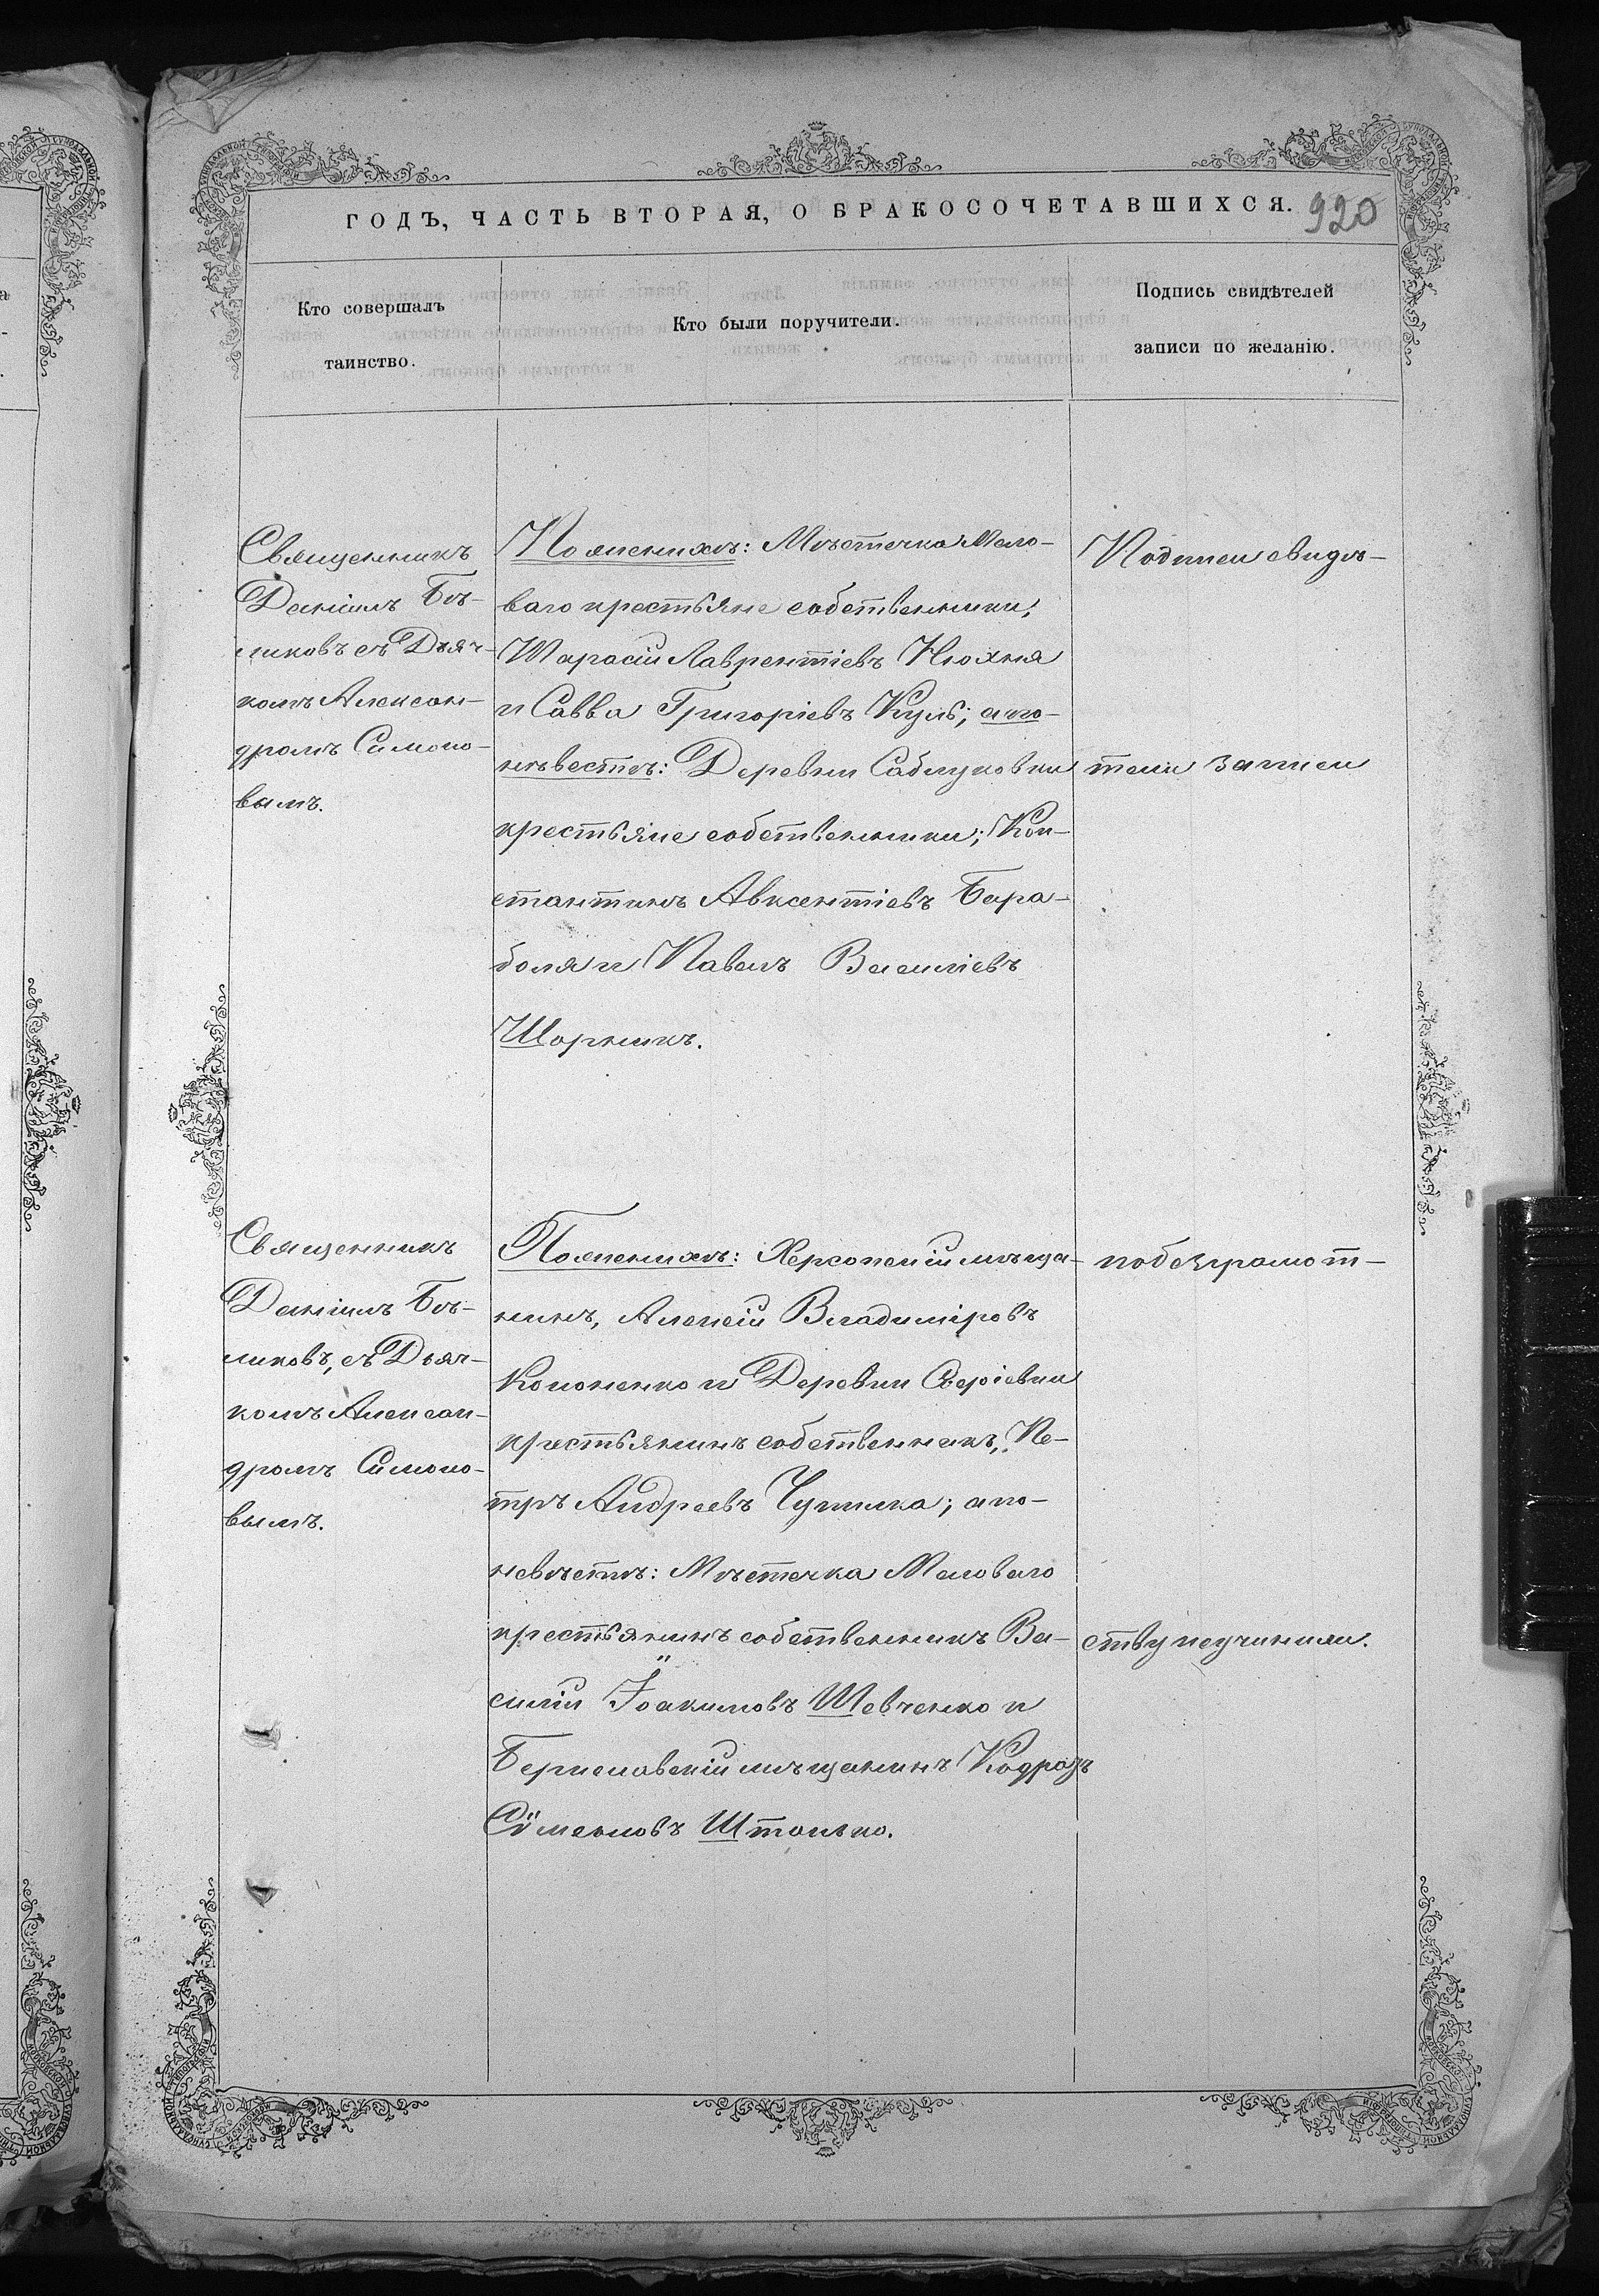 ГОДЪ, ЧАСТЬ ВТОРАЯ, О БРАКОСОЧЕТАВШИХСЯ. 920
Кто совершалъ
таинство.
Кто были поручители.
Подпись свидѣтелей
записи по желанію.
Священникъ
Даніилъ Бѣ-
ликовъ съ Дьяч-
комъ Алексан-
дромъ Симоно-
вымъ.
По женихѣ: Мѣстечка Мело-
ваго крестьяне собственники;
Тарасій Лаврентіевъ Нюхня
и Савва Григоріевъ Куль; а по-
нѣвестѣ: Деревни Саблуковки
крестьяне собственники; Кон-
стантинъ Авксентіевъ Бара-
боля и Павелъ Василіевъ
Шорникъ.
Подписи свидѣ-
тели записи
Священникъ
Даніилъ Бѣ-
ликовъ, съ Дьяч-
комъ Алексан-
дромъ Симоно-
вымъ.
По женихѣ: Херсонскій мѣща-
нинъ, Алексій Владиміровъ
Кононенко и Деревни
крестьянинъ собственникъ, Пе-
тръ Андреевъ Чупилка; а по-
невѣстѣ: Мѣстечка Меловаго
крестьянинъ собственникъ Ва-
силій Іоакимовъ Шевченко и
Бериславскій мѣщанинъ
Сѵмеоновъ
по безграмот-
ству неучинили.